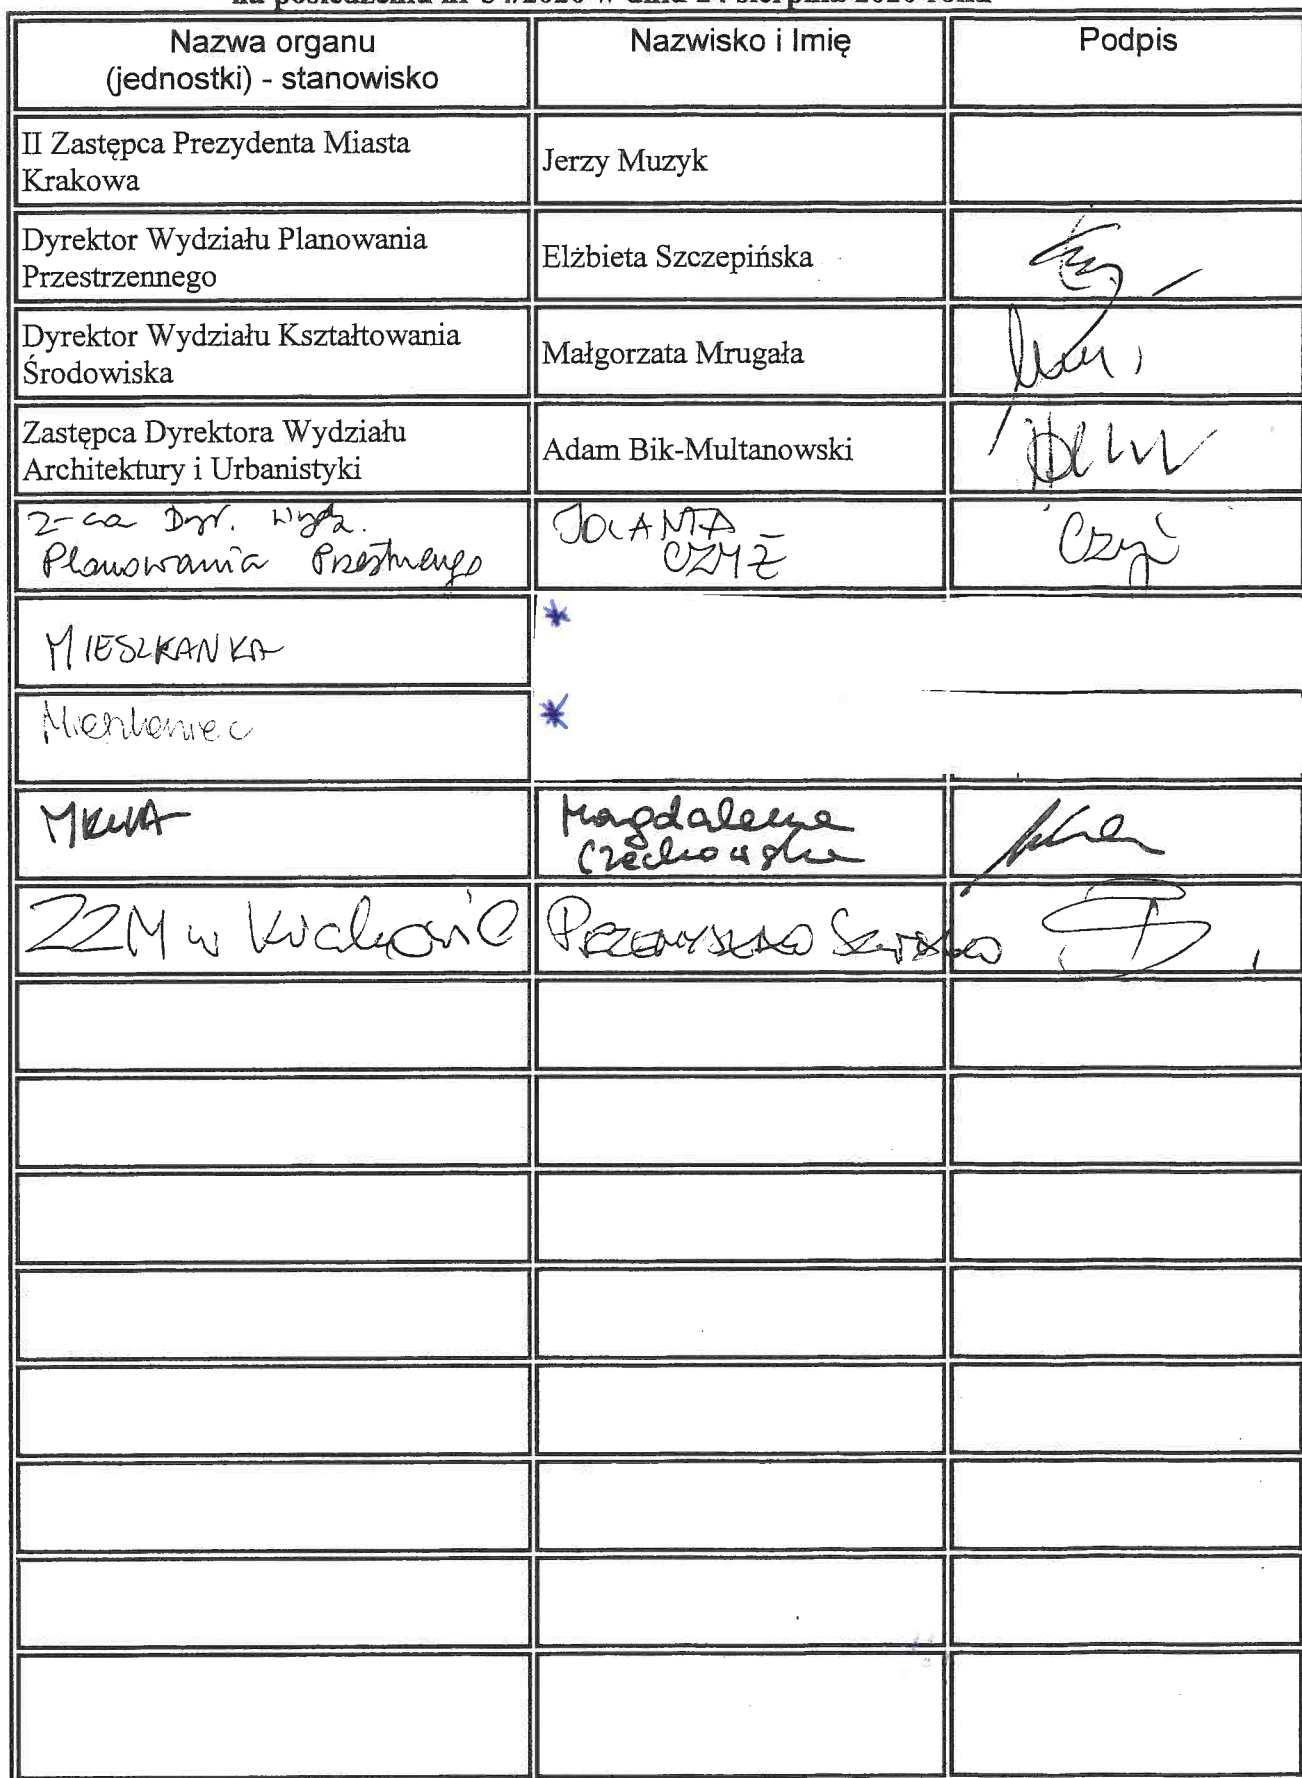 na posiedzeniu nr 84/2020 w dniu 24 sierpnia 2020 roku
Nazwa organu
(jednostki) - stanowisko
Nazwisko i Imię
Podpis
II Zastępca Prezydenta Miasta
Krakowa
Jerzy Muzyk
Dyrektor Wydziału Planowania
Przestrzennego
Elżbieta Szczepińska
Dyrektor Wydziału Kształtowania
Środowiska
Małgorzata Mrugała
Zastępca Dyrektora Wydziału
Architektury i Urbanistyki
Adam Bik-Multanowski
Z-ca Dyr. Wydz.
Planowania
JOLANTA
CZYŻ
Czyż
MIESZKANKA
*
Mieszkaniec
*
Magdalena
Czechowska
ZZM w Krakowie